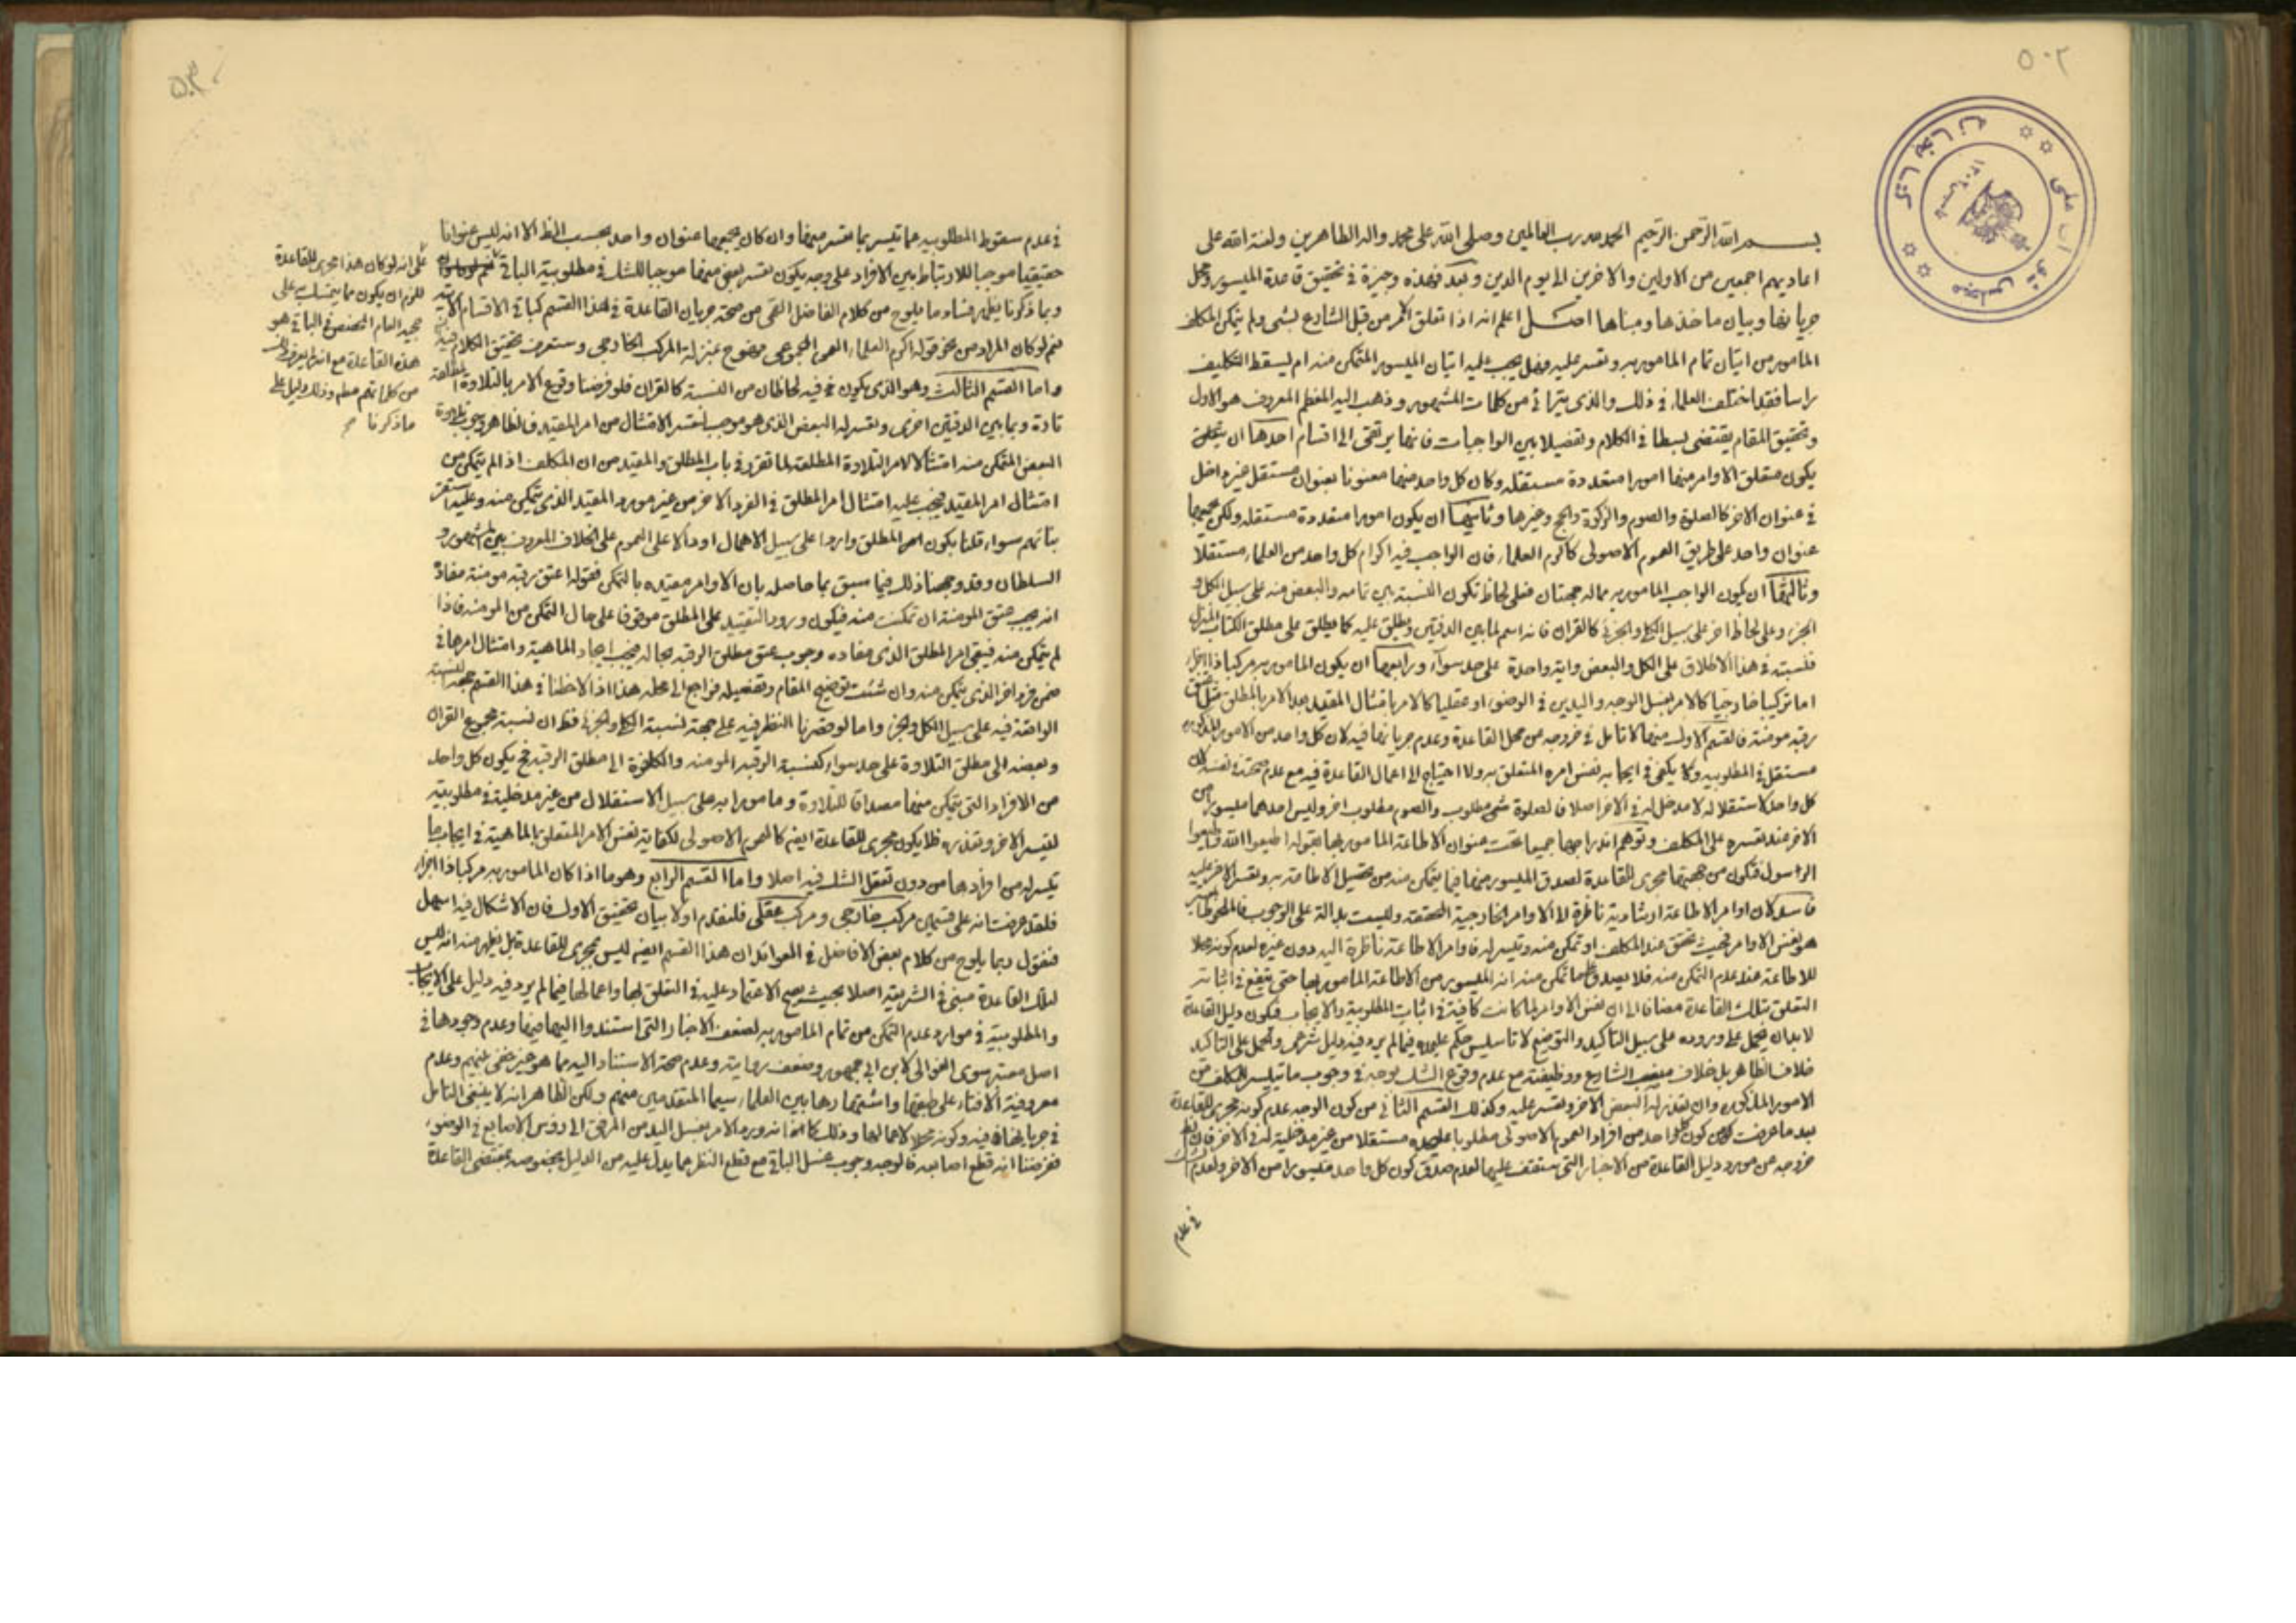 ٥٠٢
بسم الله الرحمن الرحيم الحمد لله رب العالمين وصلى الله على محمد واله الطاهرين ولعنة الله على
اعاديهم اجمعين من الاولين والاخرين الى يوم الدين وبعد فهذه وجيزة في تحقيق قاعدة الميسور ومحل
جريانها وبيان ماخذها ومبناها اصل اعلم انه اذا تعلق الامر من قبل الشارع بشئ ولم يتمكن المكلف
المامور من اتيان تمام المامور به وتعسر عليه فهل يجب عليه اتيان الميسور المتمكن منه ام يسقط التكليف
راسا فقد اختلف العلماء في ذلك والذي يترائى من كلمات المشهور وذهب اليه المعظم المعروف هو الاول
وتحقيق المقام يقتضى بسطا في الكلام وتفصيلا بين الواجبات فانها يرتقى الى اقسام احدها ان
يكون متعلق الاوامر منها امورا متعددة مستقلة وكان كل واحد منهما معنونا بعنوان مستقل غير داخل
في عنوان الاخر كالصلوة والصوم والزكوة والحج وغيرها وثانيها ان يكون امورا متعددة مستقلة ولكن يجمعها
عنوان واحد على طريق العموم الاصولى كاكرم العلماء فان الواجب فيه اكرام كل واحد من العلماء مستقلا
وثالثها ان يكون الواجب المامور به مما له جهتان فعلى لحاظ تكون النسبة بين تمامه والبعض منه على سبيل الكل و
الجزء وعلى لحاظ اخر على سبيل الكلى والجزئى كالقران فانه اسم لما بين الدفتين ويطلق عليه كما يطلق على مطلق الكتاب المنزل
فنسبته في هذا الاطلاق على الكل والبعض واية واحدة على حد سواء ورابعها ان يكون المامور به مركبا ذا اجزاء
اما تركيبا خارجيا كالامر بغسل الوجه واليدين في الوضوء او عقليا كالامر بامتثال المقيد بعد الامر بالمطلق مثل اعتق
رقبة مومنة فالقسم الاول منها لا تامل في خروجه من محل القاعدة وعدم جريانها فيه لان كل واحد من الامور المذكورة
مستقل في المطلوبية ولا يكفى في ايجابه نفس امره المتعلق به ولا احتياج الى اعمال القاعدة فيه مع عدم صحته في نفسه لان
كل واحد لاستقلاله لا مدخل له في الاخر اصلا فالصلوة شئ مطلوب والصوم مطلوب اخر وليس احدهما ميسورا من
الاخر عند تعسره على المكلف وتوهم اندراجهما جميعا تحت عنوان الاطاعة المامور بها بقوله اطيعوا الله واطيعوا
الرسول فتكون من جهتها مجرى للقاعدة لصدق الميسور منها فيما يتمكن منه من تحصيل الاطاعة به وتعسر الاخر عليه
فاسد لان اوامر الاطاعة ارشادية ناظرة الى الاوامر الخارجية المحققة وليست بدالة على الوجوب فالملحوظ
هو نفس الاوامر فحيث تحقق عند المكلف او تمكن منه وتيسر له فاوامر الاطاعة ناظرة اليه دون غيره لعدم كونه محلا
للاطاعة عند عدم التمكن منه فلا يصدق على ما تمكن منه انه الميسور من الاطاعة المامور بها حتى ينفع في اثباته
التعلق بتلك القاعدة مضافا الى ان نفس الاوامر لما كانت كافية في اثبات المطلوبية والايجاب فيكون دليل القاعدة
لابد ان يحمل على وروده على سبيل التاكيد والتوضيح لا تاسيس حكم عليحده فيما لم يرد فيه دليل شرعى والحمل على التاكيد
خلاف الظاهر بل خلاف منصب الشارع ووظيفته مع عدم وقوع الشك لاحد في وجوب ما تيسر للمكلف من
الامور المذكورة وان تعذر له البعض الاخر وتعسر عليه وكذلك القسم الثانى من كون الوجه عدم كونه مجرى للقاعدة
بعد ما عرفت من كون كل واحد من افراد العموم الاصولى مطلوبا عليحده مستقلا من غير مدخلية له في الاخر
خروجه من مورد دليل القاعدة من الاخبار التى ستقف عليها لعدم صدق كون كل واحد ميسورا من الاخر ولعدم
في عدم
٥٠٣
في عدم سقوط المطلوبية عما تيسر بما تعسر منها وان كان يجمعها عنوان واحد بحسب اللفظ الا انه ليس عنوانا
حقيقيا موجبا للارتباط بين الافراد على وجه يكون تعسر بعض منها موجبا للشك في مطلوبية الباقى
وبما ذكرنا يظهر فساد ما يلوح من كلام الفاضل القمى من صحة جريان القاعدة في هذا القسم كباقى الاقسام الاتية
نعم لو كان المراد من نحو قوله اكرم العلماء العموم المجموعى فهو بمنزلة المركب الخارجى وستعرف تحقيق الكلام فيه
واما القسم الثالث وهو الذى يكون فيه لحاظان من النسبة كالقران فلو فرضنا وقوع الامر بالتلاوة المطلقة
تارة وبما بين الدفتين اخرى وتعسر له البعض الذى هو موجب لتعسر الامتثال من امر المقيد فالظاهر وجوب تلاوة
البعض المتمكن منه امتثالا لامر التلاوة المطلقة لما تقرر في باب المطلق والمقيد من ان المكلف اذا لم يتمكن من
امتثال امر المقيد يجب عليه امتثال امر المطلق في الفرد الاخر من غير مورد المقيد الذى يتمكن منه وعليه استقر
بنائهم سواء قلنا بكون امر المطلق واردا على سبيل الاهمال او دالا على العموم على الخلاف المعروف بين المشهور و
السلطان وقد وجهنا ذلك فيما سبق بما حاصله بان الاوامر مقيدة بالتمكن فقوله اعتق رقبة مومنة مفاده
انه يجب عتق المومنة ان تمكنت منه فيكون ورود التقييد على المطلق موقوفا على حال التمكن من المومنة فاذا
لم يتمكن منه فيبقى امر المطلق الذى مفاده وجوب عتق مطلق الرقبة بحاله فيجب ايجاد الماهية وامتثال امرها في
ضمن فرد اخر الذى يتمكن منه وان شئت توضيح المقام وتفصيله فراجع الى محله هذا اذا لاحظنا في هذا القسم جهة النسبة
الواقعة فيه على سبيل الكل والجزء واما لو قصرنا النظر فيه على جهة نسبة الكلى والجزئى فنظر ان نسبة مجموع القران
وبعضه الى مطلق التلاوة على حد سواء كنسبة الرقبة المومنة والكافرة الى مطلق الرقبة فح يكون كل واحد
من الافراد التى يتمكن منها مصداقا للتلاوة ومامورا به على سبيل الاستقلال من غير مدخلية في مطلوبيته
لتيسر الاخر وتعذره فلا يكون مجرى للقاعدة ايضا كالعموم الاصولى لكفاية نفس الامر المتعلق بالماهية في ايجاب ما
تيسر له من افرادها من دون تعقل الشك فيه اصلا واما القسم الرابع وهو ما اذا كان المامور به مركبا ذا اجزاء
فلقد عرفت انه على قسمين مركب خارجى ومركب عقلى فلنقدم اولا بيان تحقيق الاول فان الاشكال فيه اسهل
فنقول ربما يلوح من كلام بعض الافاضل في العوائد ان هذا القسم ايضا ليس مجرى للقاعدة بل يظهر منه انه ليس
لتلك القاعدة مبنى في الشريعة اصلا بحيث يصح الاعتماد عليه في التعلق بها واعمالها فيما لم يرد فيه دليل على الايجاب
والمطلوبية في موارد عدم التمكن من تمام المامور به لضعف الاخبار التى استندوا اليها فيها وعدم وجودها في
اصل معتبر سوى العوالى لابن ابى جمهور وضعف روايته وعدم صحة الاستناد اليه مما هو غير خفى عليهم وعدم
معروفية الافتاء على طبقها واشتهارها بين العلماء سيما المتقدمين منهم ولكن الظاهر انه لا ينبغى التامل
في جريانها فيه وكونه محلا لاعمالها وذلك كما اذا ورد الامر بغسل اليد من المرفق الى رؤس الاصابع في الوضوء
ففرضنا انه قطع اصابعه فالوجه وجوب غسل الباقى مع قطع النظر عما يدل عليه من الدليل بخصوصه بمقتضى القاعدة
على انه لو كان هذا مجرى للقاعدة
للزم ان يكون مما يتمسك به على
حجية العام المخصص في الباقى هو
هذه القاعدة مع انه لم يعرف ذلك
من كلماتهم وذلك دليل على
ما ذكرنا